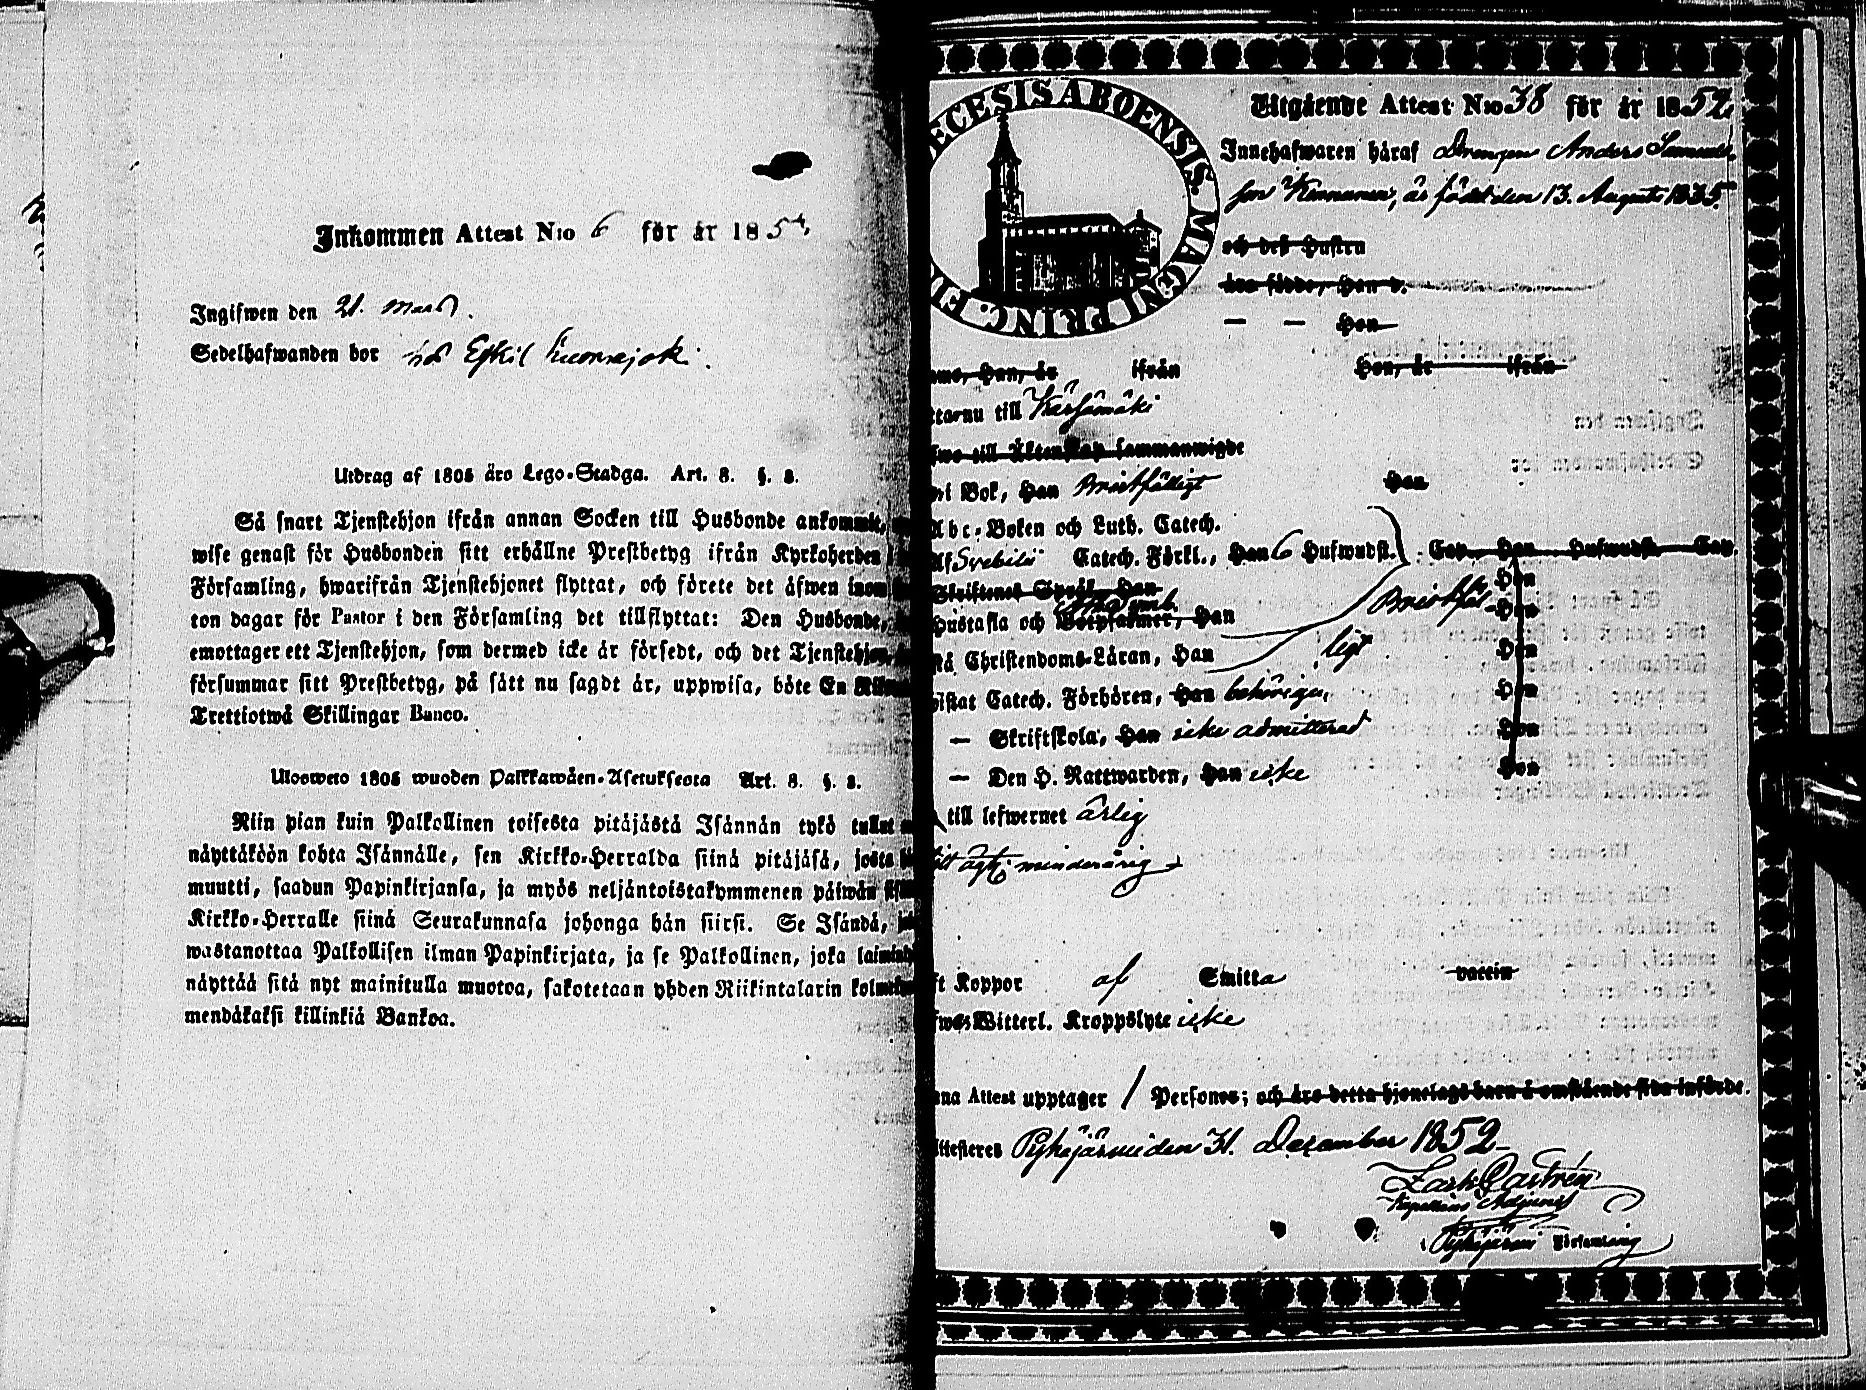 Inkommen Attest N:o 6 för år 185
Ingifwen den 21. Mars.
Sedelhafwanden bor hos Eskil Kuonajoki.
Utdrag af 1805 åro Lego-Stadga. Art. 8. §. 8.
Så snart Tjenstehjon ifrån annan Socken till Husbonde ankommit,
wise genast för Husbonden sitt erhållne Prestbetyg ifrån Kyrkoherden
Församling, hwarifrån Tjenstehjonet flyttat, och förete det åfwen inom
ton dagar för Pastor i den Församling det tillflyttat: Den Husbonde,
emottager ett Tjenstehjon, som dermed icke år försedt, och det Tjenstehjon,
försummar sitt Prestbetyg, på sätt nu sagdt år, uppwisa, böte En
Trettiotwå Skillingar Banco.
Ulosweto 1805 wuoden Palkkawåen-Asetuksesta Art. 8. §. 8.
Niin pian kuin Palkollinen toisesta pitåjåstå Isånnån tykö tullut
nåyttåköön kohta Isånnålle, sen Kirkko-Herralda siinå pitåjåså, josta
muutti, saadun Papinkirjansa, ja myös neljåntoistakymmenen påiwån
Kirkko-Herralle siinå Seurakunnasa johonga hån siirsi. Se Isåndå,
wastanottaa Palkollisen ilman Papinkirjata, ja se Palkollinen, joka
nåyttåå sitå nyt mainitulla muotoa, sakotetaan yhden Riikintalarin
mendåkaksi killinkiå Bankoa.
ECESIS ABOENSIS. MAGNI PRINC. FI
Utgående Attest N:o 38 för år 1852
Innehafwaren håraf Drengen Anders Samuels-
son Kinnunen, är född den 13. Augusti 1835.
och des Hustru
åro födde, Han d.
— — Hon
Han, år ifrån Hon, år ifrån
till Kärsämäki
till Åktenskap sammanwigde
i Bok, Han Bristfälligt Hon
Abc-Boken och Luth. Catech.
Af Svebilii Catech. Förkl., Han 6 Hufwudst. Cap., Hon Hufwudst. Cap.
Skriftenes Språk, Han Hon
Hustafla och Botpsalmer, Han Bristfäl- Hon
Christendoms-Låran, Han ligt Hon
Catech. Förhören, Han behörigen, Hon
— Skriftskola, Han icke admitterad Hon
— Den H. Nattwarden, Han icke Hon
till lefwernet ärlig
minderårig
Koppor af Smitta vaccin
Witterl. Kroppslyte icke
Attest upptager 1 Personer; och åro detta hjonelags barn å omstående sida införde.
Pyhäjärvi den 31. December 1852
Zach Castrén
Kapellans Adjunct
Pyhäjärvi Församling